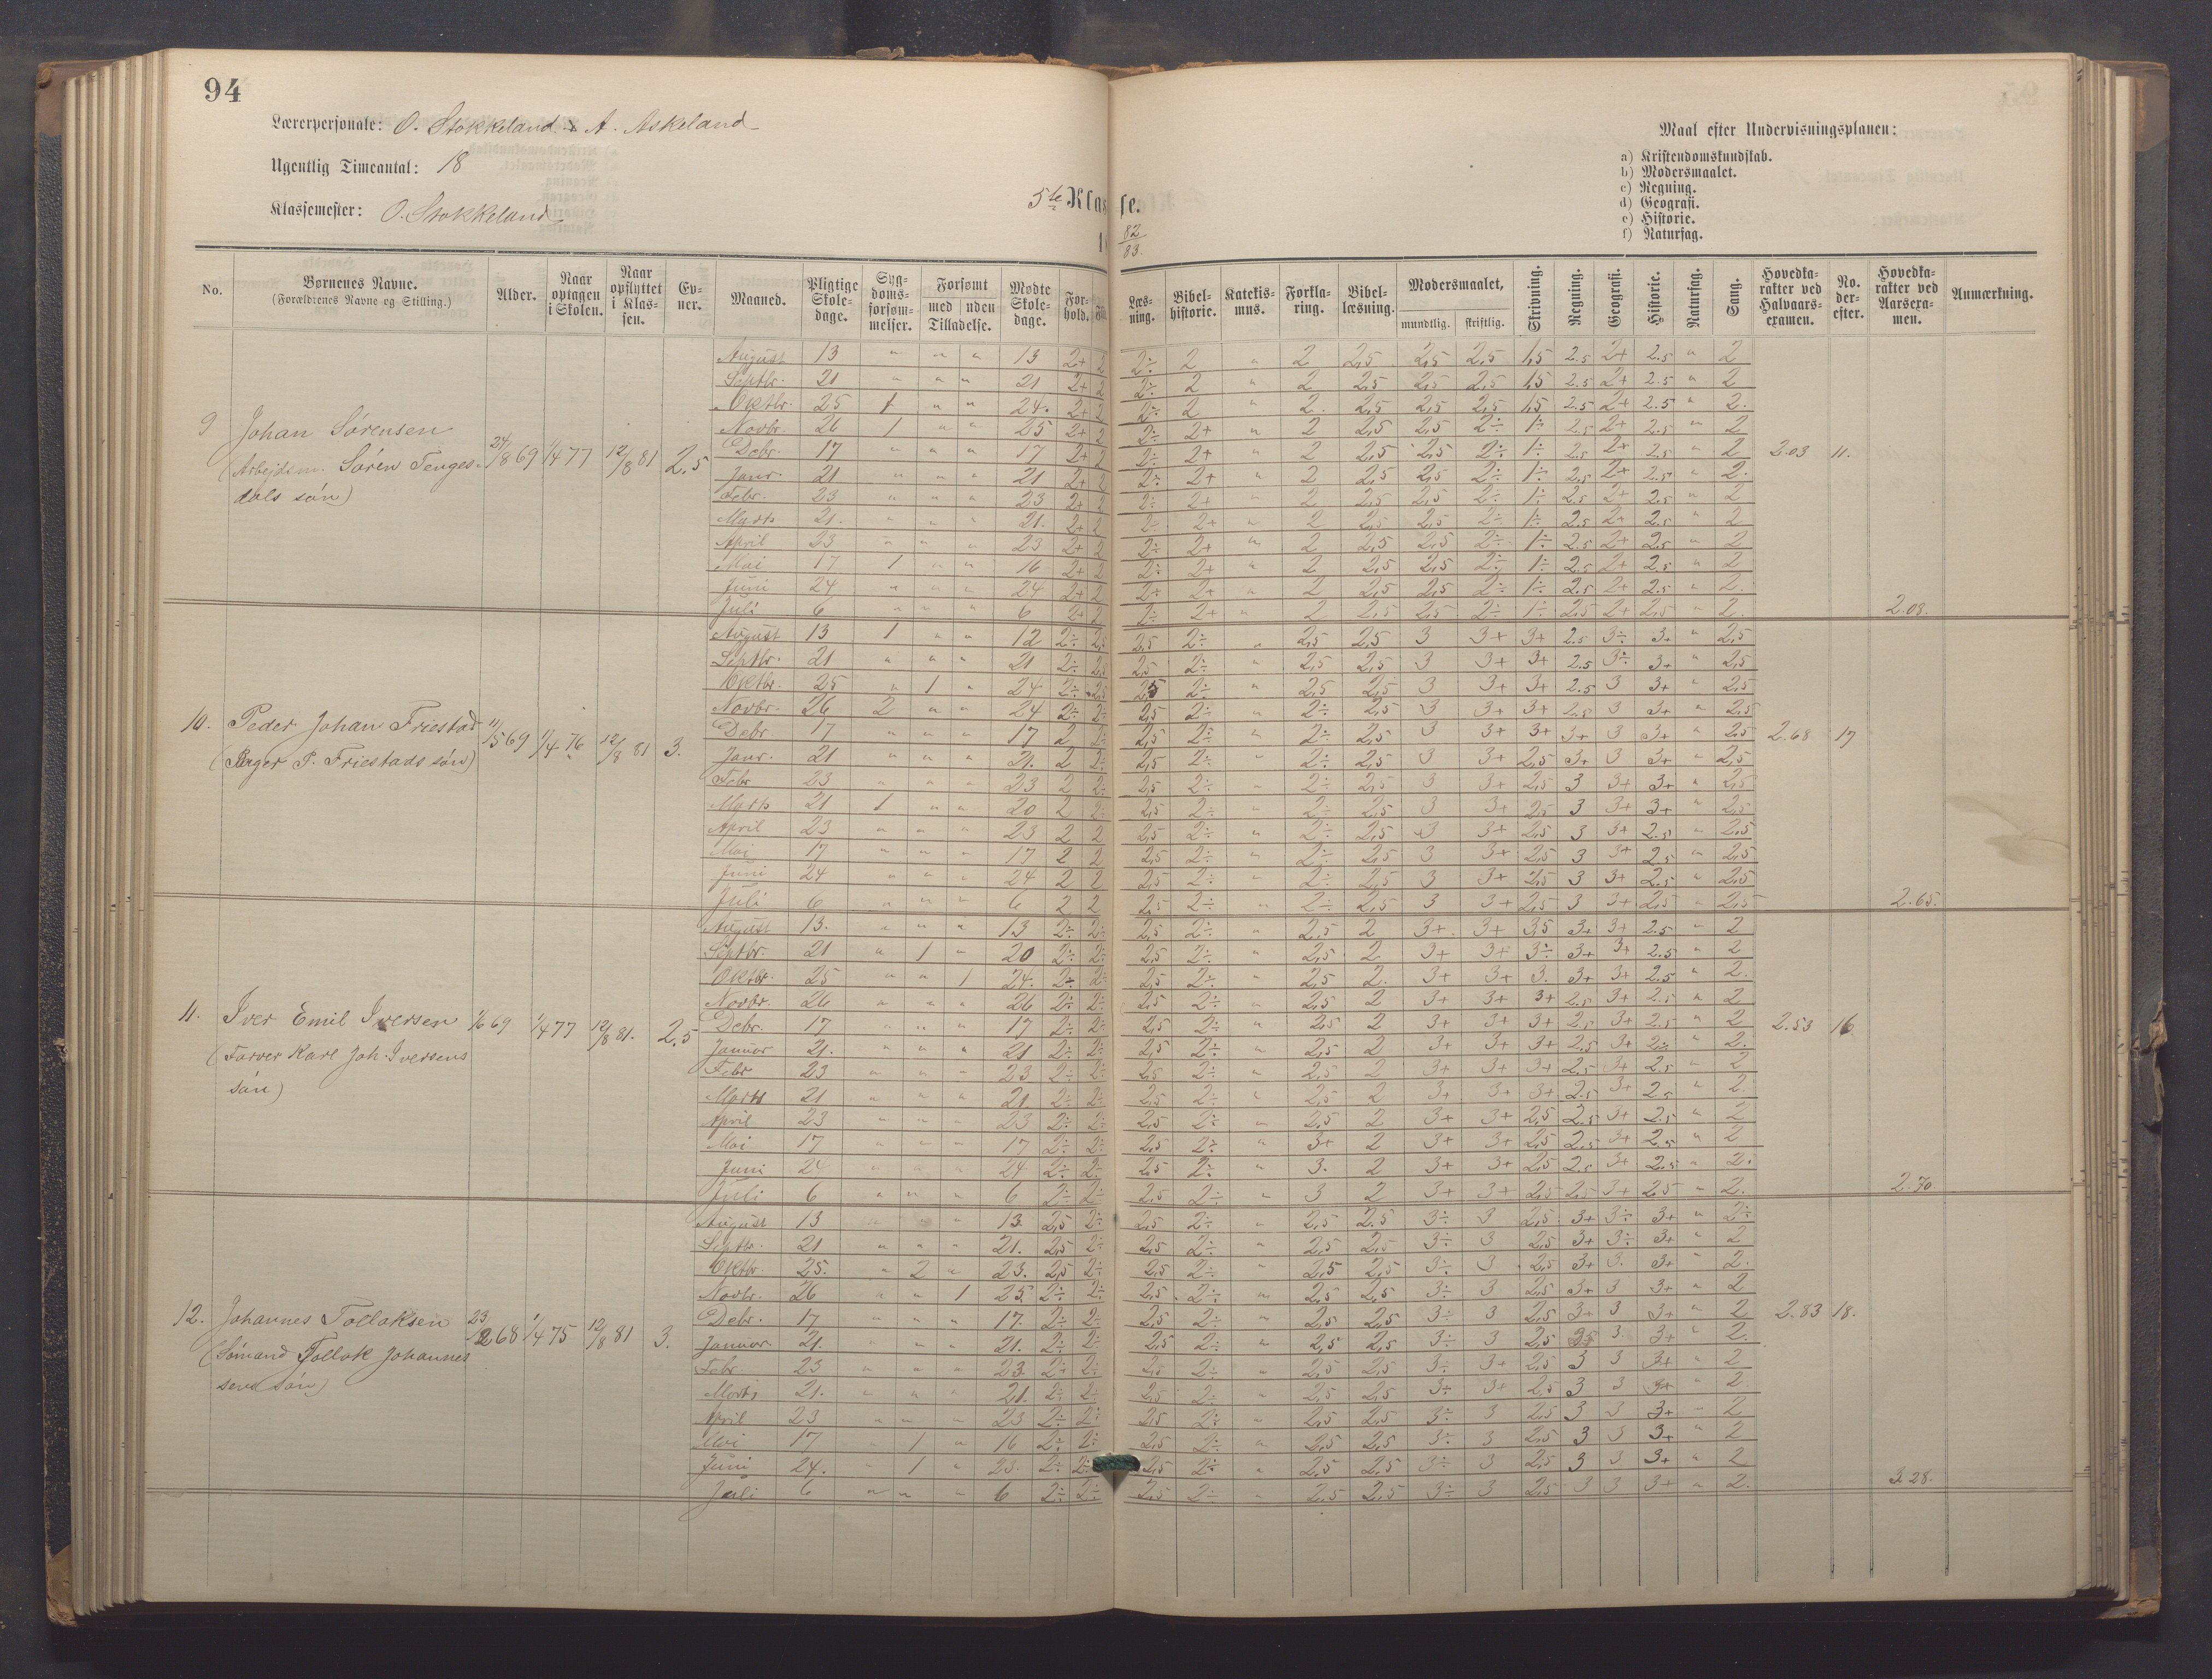 94
Lærerpersonale: O. Stokkeland & A. Askeland
Ugentlig Timeantal: 18
Klassemester: O. Stokkeland
5te Klasse.
18 82/83.
Maal efter Undervisningsplanen:
a) Kristendomskundskab.
b) Modersmaalet.
c) Regning.
d) Geografi.
e) Historie.
f) Naturfag.
No. Børnenes Navne. (Forældrenes Navne og Stilling.) Alder. Naar optagen i Skolen. Naar opflyttet i Klassen. Evner. Maaned. Pligtige Skoledage. Sygdomsforsømmelser. Forsømt med Tilladelse. uden Tilladelse. Mødte Skoledage. Forhold. Læsning. Bibelhistorie. Katekismus. Forklaring. Bibellæsning. Modersmaalet, mundtlig. skriftlig. Skrivning. Regning. Geografi. Historie. Naturfag. Sang. Hovedkarakter ved Halvaarsexamen. No. derefter. Hovedkarakter ved Aarsexamen. Anmærkning.
August 13 " " " 13 2+ 2 2÷ 2 " 2 2,5 2,5 2,5 1,5 2.5 2+ 2.5 " 2
Septbr. 21 " " " 21 2+ 2 2÷ 2 " 2 2,5 2,5 2,5 1,5 2.5 2+ 2.5 " 2
Oktbr. 25 1 " " 24. 2+ 2 2÷ 2 " 2. 2,5 2,5 2,5 1,5 2.5 2+ 2.5 " 2.
Novbr. 26 1 " " 25 2+ 2 2÷ 2+ " 2 2,5 2,5 2÷ 1÷ 2.5 2+ 2.5 " 2
9 Johan Sørensen
(Arbejdsm. Søren Tenges-
dals søn)
24/8 69 1/4 77 12/8 81 2.5
Debr. 17 " " " 17 2+ 2 2÷ 2+ " 2 2,5 2,5 2÷ 1÷ 2.5 2+ 2.5 " 2 2.03 11.
Janr. 21 " " " 21 2+ 2 2÷ 2+ " 2 2,5 2,5 2÷ 1÷ 2.5 2+ 2.5 " 2.
Febr. 23 " " " 23 2+ 2 2÷ 2+ " 2 2,5 2,5 2÷ 1÷ 2.5 2+ 2.5 " 2
Marts 21. " " " 21. 2+ 2 2÷ 2+ " 2 2,5 2,5 2÷ 1÷ 2.5 2+ 2.5 " 2
April 23 " " " 23 2+ 2 2÷ 2+ " 2 2,5 2,5 2÷ 1÷ 2.5 2+ 2.5 " 2
Mai 17 1 " " 16 2+ 2 2÷ 2+ " 2 2,5 2,5 2÷ 1÷ 2.5 2+ 2.5 " 2
Juni 24 " " " 24 2+ 2 2÷ 2+ " 2 2,5 2,5 2÷ 1÷ 2.5 2+ 2.5 " 2.
Juli 6 " " " 6 2+ 2 2÷ 2+ " 2 2,5 2,5 2÷ 1÷ 2,5 2+ 2,5 " 2. 2.08.
August 13 1 " " 12 2÷ 2,5 2,5 2÷ " 2,5 2,5 3 3+ 3+ 2.5 3÷ 3+ " 2,5
Septbr. 21 " " " 21 2÷ 2,5 2,5 2÷ " 2,5 2,5 3 3+ 3+ 2.5 3÷ 3+ " 2,5
Oktbr. 25 " 1 " 24 2÷ 2,5 2,5 2÷ " 2,5 2,5 3 3+ 3+ 2.5 3 3+ " 2,5
Novbr. 26 2 " " 24 2÷ 2÷ 2,5 2÷ " 2÷ 2,5 3 3+ 3+ 2.5 3 3+ " 2,5
10. Peder Johan Friestad
(Bager P. Friestads søn)
11/5 69 1/4 76 12/8 81 3.
Debr. 17 " " " 17 2 2÷ 2,5 2÷ " 2÷ 2,5 3 3+ 3+ 3+ 3 3+ " 2,5 2.68 17
Janr. 21 " " " 21. 2 2÷ 2,5 2÷ " 2÷ 2,5 3 3+ 2,5 3+ 3 3+ " 2,5
Febr 23 " " " 23 2 2÷ 2,5 2÷ " 2÷ 2,5 3 3+ 2,5 3 3+ 3+ " 2,5
Marts 21 1 " " 20 2 2÷ 2,5 2÷ " 2÷ 2,5 3 3+ 2,5 3 3+ 3+ " 2,5
April 23 " " " 23 2 2 2,5 2÷ " 2÷ 2,5 3 3+ 2,5 3 3+ 2.5 " 2,5
Mai 17 " " " 17 2 2 2,5 2÷ " 2÷ 2,5 3 3+ 2,5 3 3+ 2.5 " 2,5
Juni 24 " " " 24 2 2 2,5 2÷ " 2÷ 2,5 3 3+ 2,5 3 3+ 2.5 " 2,5
Juli 6 " " " 6 2 2 2,5 2÷ " 2÷ 2,5 3 3+ 2,5 3 3+ 2,5 " 2,5 2.65.
August 13. " " " 13 2÷ 2÷ 2,5 2÷ " 2,5 2 3+ 3+ 3,5 3+ 3+ 2.5 " 2
Septbr. 21 " 1 " 20 2÷ 2÷ 2,5 2÷ " 2,5 2 3+ 3+ 3÷ 3+ 3+ 2.5 " 2
Oktbr. 25 " " 1 24. 2÷ 2÷ 2,5 2÷ " 2,5 2. 3+ 3+ 3. 3+ 3+ 2.5 " 2.
Novbr. 26 " " " 26 2÷ 2÷ 2,5 2÷ " 2,5 2 3+ 3+ 3+ 2.5 3+ 2.5 " 2
11. Iver Emil Iversen
(Farver Karl Joh. Iversens
søn)
1/6 69 1/4 77 12/8 81. 2.5
Debr. 17 " " " 17 2÷ 2÷ 2,5 2÷ " 2,5 2 3+ 3+ 3+ 2.5 3+ 2.5 " 2 2.53 16
Januar 21. " " " 21 2÷ 2÷ 2,5 2÷ " 2,5 2 3+ 3+ 3+ 2.5 3+ 2÷ " 2.
Febr 23 " " " 23 2÷ 2÷ 2,5 2÷ " 2,5 2 3+ 3+ 3+ 2.5 3+ 2.5 " 2
Marts 21 " " " 21 2÷ 2÷ 2,5 2÷ " 2,5 2 3+ 3+ 3+ 2.5 3+ 2.5 " 2.
April 23 " " " 23 2÷ 2÷ 2,5 2÷ " 2,5 2 3+ 3+ 2,5 2.5 3+ 2.5 " 2
Mai 17 " " " 17 2÷ 2÷ 2,5 2÷ " 3+ 2 3+ 3+ 2,5 2.5 3+ 2.5 " 2
Juni 24 " " " 24 2÷ 2÷ 2,5 2÷ " 3. 2 3+ 3+ 2,5 2.5 3+ 2.5 " 2.
Juli 6 " " " 6 2÷ 2÷ 2,5 2÷ " 3 2 3+ 3+ 2,5 2,5 3+ 2,5 " 2. 2.70.
August 13 " " " 13. 2,5 2÷ 2,5 2÷ " 2,5 2.5 3÷ 3 2,5 3+ 3÷ 3+ " 2÷
Septbr. 21 " " " 21. 2,5 2÷ 2,5 2÷ " 2,5 2,5 3÷ 3 2,5 3+ 3÷ 3+ " 2
Oktbr. 25. " 2 " 23. 2,5 2÷ 2,5 2÷ " 2,5 2,5 3÷ 3 2,5 3+ 3. 3+ " 2.
Novbr. 26 " " 1 25. 2÷ 2÷ 2,5 2÷ " 2,5 2,5 3÷ 3 2,5 3+ 3 3+ " 2
12. Johannes Tollaksen
(Sømand Tollak Johannes
sens søn)
23/12 68 1/4 75 12/8 81 3.
Debr. 17 " " " 17. 2÷ 2÷ 2,5 2÷ " 2,5 2,5 3÷ 3 2,5 3+ 3 3+ " 2 2.83 18.
Januar. 21. " " " 21. 2÷ 2÷ 2,5 2÷ " 2,5 2,5 3÷ 3 2,5 3+ 3. 3+ " 2.
Febr. 23 " " " 23. 2÷ 2÷ 2,5 2÷ " 2,5 2,5 3÷ 3+ 2,5 3 3 3+ " 2
Marts 21. " " " 21. 2÷ 2÷ 2,5 2÷ " 2,5 2,5 3÷ 3+ 2,5 3 3 3+ " 2
April 23 " " " 23 2÷ 2÷ 2,5 2÷ " 2,5 2,5 3÷ 3 2,5 3 3 3+ " 2
Mai 17 " 1 " 16 2÷ 2÷ 2,5 2÷ " 2,5 2,5 3÷ 3 2,5 3 3 3+ " 2
Juni 24. " 1 " 23. 2÷ 2÷ 2,5 2÷ " 2,5 2,5 3÷ 3 2,5 3 3 3+ " 2
Juli 6 " " " 6 2÷ 2÷ 2,5 2÷ " 2,5 2,5 3÷ 3 2,5 3 3 3+ " 2. 3.28.